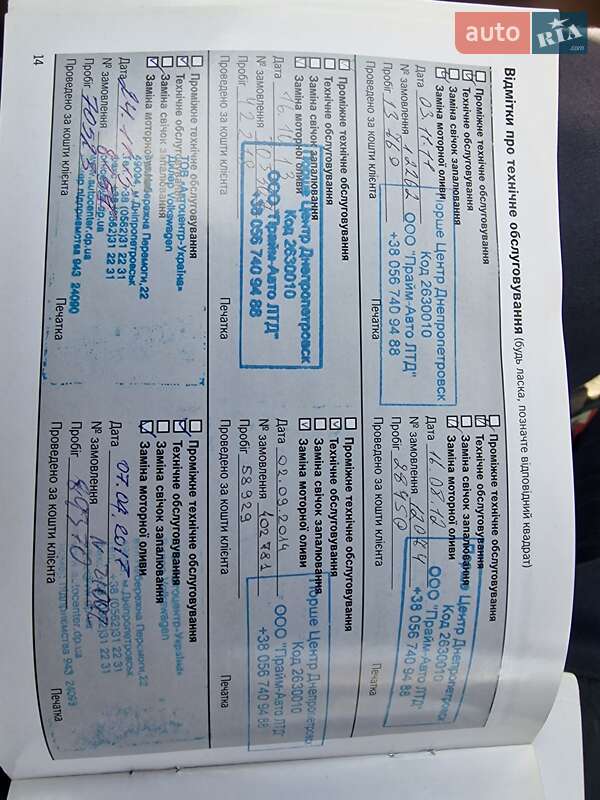 auto RIA .com
Відмітки про технічне обслуговування (будь ласка, позначте відповідний квадрат)
Проміжне технічне обслуговування
Технічне обслуговування
Заміна свічок запалювання
Заміна моторної оливи
Дата 03.11.11
№ замовлення
Пробіг 13 769
Проведено за кошти клієнта
Печатка
Порше Центр Днепропетровск
Код 2630010
ООО "Прайм-Авто ЛТД"
+38 056 740 94 88
Проміжне технічне обслуговування
Технічне обслуговування
Заміна свічок запалювання
Заміна моторної оливи
Дата 16.08.12
№ замовлення
Пробіг 28950
Проведено за кошти клієнта
Печатка
Порше Центр Днепропетровск
Код 2630010
ООО "Прайм-Авто ЛТД"
+38 056 740 94 88
Проміжне технічне обслуговування
Технічне обслуговування
Заміна свічок запалювання
Заміна моторної оливи
Дата 16.10.13
№ замовлення
Пробіг
Проведено за кошти клієнта
Печатка
Порше Центр Днепропетровск
Код 2630010
ООО "Прайм-Авто ЛТД"
+38 056 740 94 88
Проміжне технічне обслуговування
Технічне обслуговування
Заміна свічок запалювання
Заміна моторної оливи
Дата 02.09.2014
№ замовлення 102781
Пробіг 58929
Проведено за кошти клієнта
Печатка
Порше Центр Днепропетровск
Код 2630010
ООО "Прайм-Авто ЛТД"
+38 056 740 94 88
Проміжне технічне обслуговування
Технічне обслуговування
Заміна свічок запалювання
Заміна моторної оливи
Дата
№ замовлення
Пробіг
Проведено за кошти клієнта
Печатка
ТОВ Автоцентр-Україна»
Дилер Volkswagen
Набережна Перемоги, 22
49094, м.Дніпропетровськ
+38 (0562)31 22 31
autocenter.dp.ua
підприємства 943 24090
Проміжне технічне обслуговування
Технічне обслуговування
Заміна свічок запалювання
Заміна моторної оливи
Дата 07.04.2017
№ замовлення
Пробіг 89370
Проведено за кошти клієнта
Печатка
Автоцентр-Україна»
Набережна Перемоги 22
м Дніпропетровськ
+38 (0562)31 22 31
autocenter.dp.ua
підприємства 943 24093
14